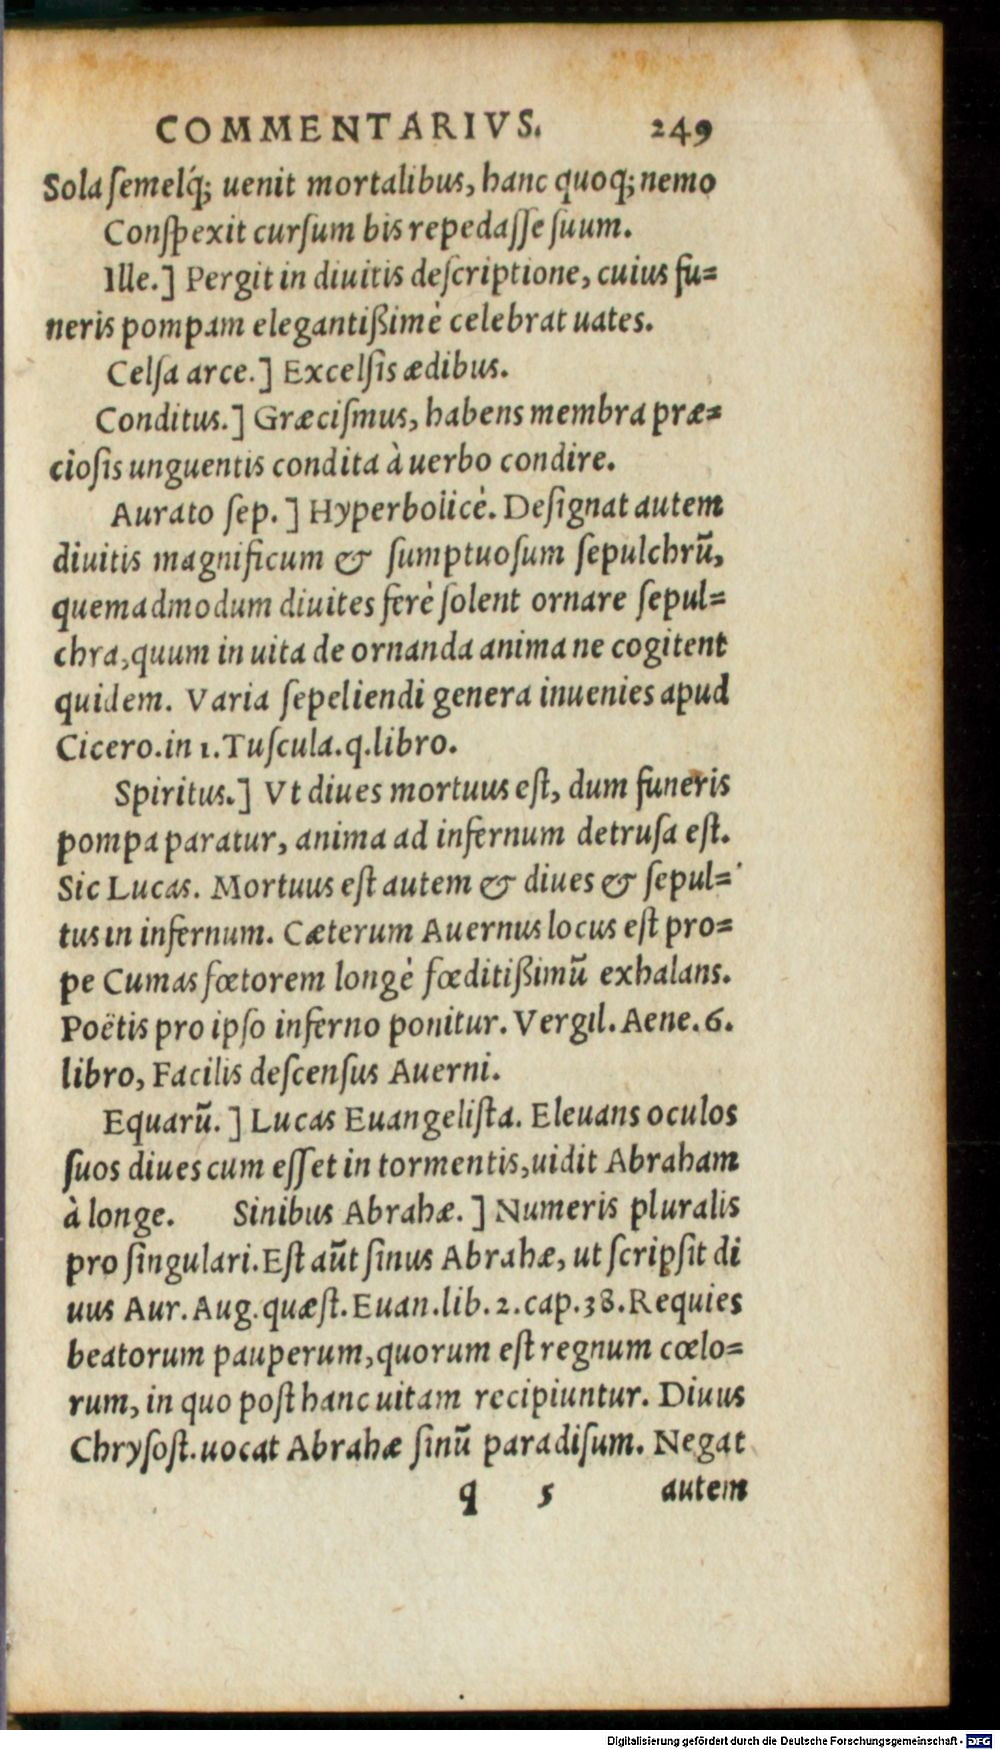 COMMENTARIVS. 249
Sola ſemelq́; uenit mortalibus, hanc quoq; nemo
Conſpexit curſum bis repedaſſe ſuum.
Ille.] Pergit in diuitis deſcriptione, cuius fu=
neris pompam elegantißimè celebrat uates.
Celſa arce.] Excelſis ædibus.
Conditus.] Græciſmus, habens membra præ=
cioſis unguentis condita à uerbo condire.
Aurato ſep.] Hyperbolicè. Deſignat autem
diuitis magnificum & ſumptuoſum ſepulchrū,
quemadmodum diuites ferè ſolent ornare ſepul=
chra, quum in uita de ornanda anima ne cogitent
quidem. Varia ſepeliendi genera inuenies apud
Cicero. in 1. Tuſcula. q. libro.
Spiritus.] Vt diues mortuus eſt, dum funeris
pompa paratur, anima ad infernum detruſa eſt.
Sic Lucas. Mortuus eſt autem & diues & ſepul=
tus in infernum. Cæterum Auernus locus eſt pro=
pe Cumas fœtorem longè fœditißimū exhalans.
Poëtis pro ipſo inferno ponitur. Vergil. Aene. 6.
libro, Facilis deſcenſus Auerni.
Equarū.] Lucas Euangeliſta. Eleuans oculos
ſuos diues cum eſſet in tormentis, uidit Abraham
à longe. Sinibus Abrahæ.] Numeris pluralis
pro ſingulari. Eſt aūt ſinus Abrahæ, ut ſcripſit di
uus Aur. Aug. quæſt. Euan. lib. 2. cap. 38. Requies
beatorum pauperum, quorum eſt regnum cœlo=
rum, in quo poſt hanc uitam recipiuntur. Diuus
Chryſoſt. uocat Abrahæ ſinū paradiſum. Negat
q 5 autem
Digitalisierung gefördert durch die Deutsche Forschungsgemeinschaft - DFG